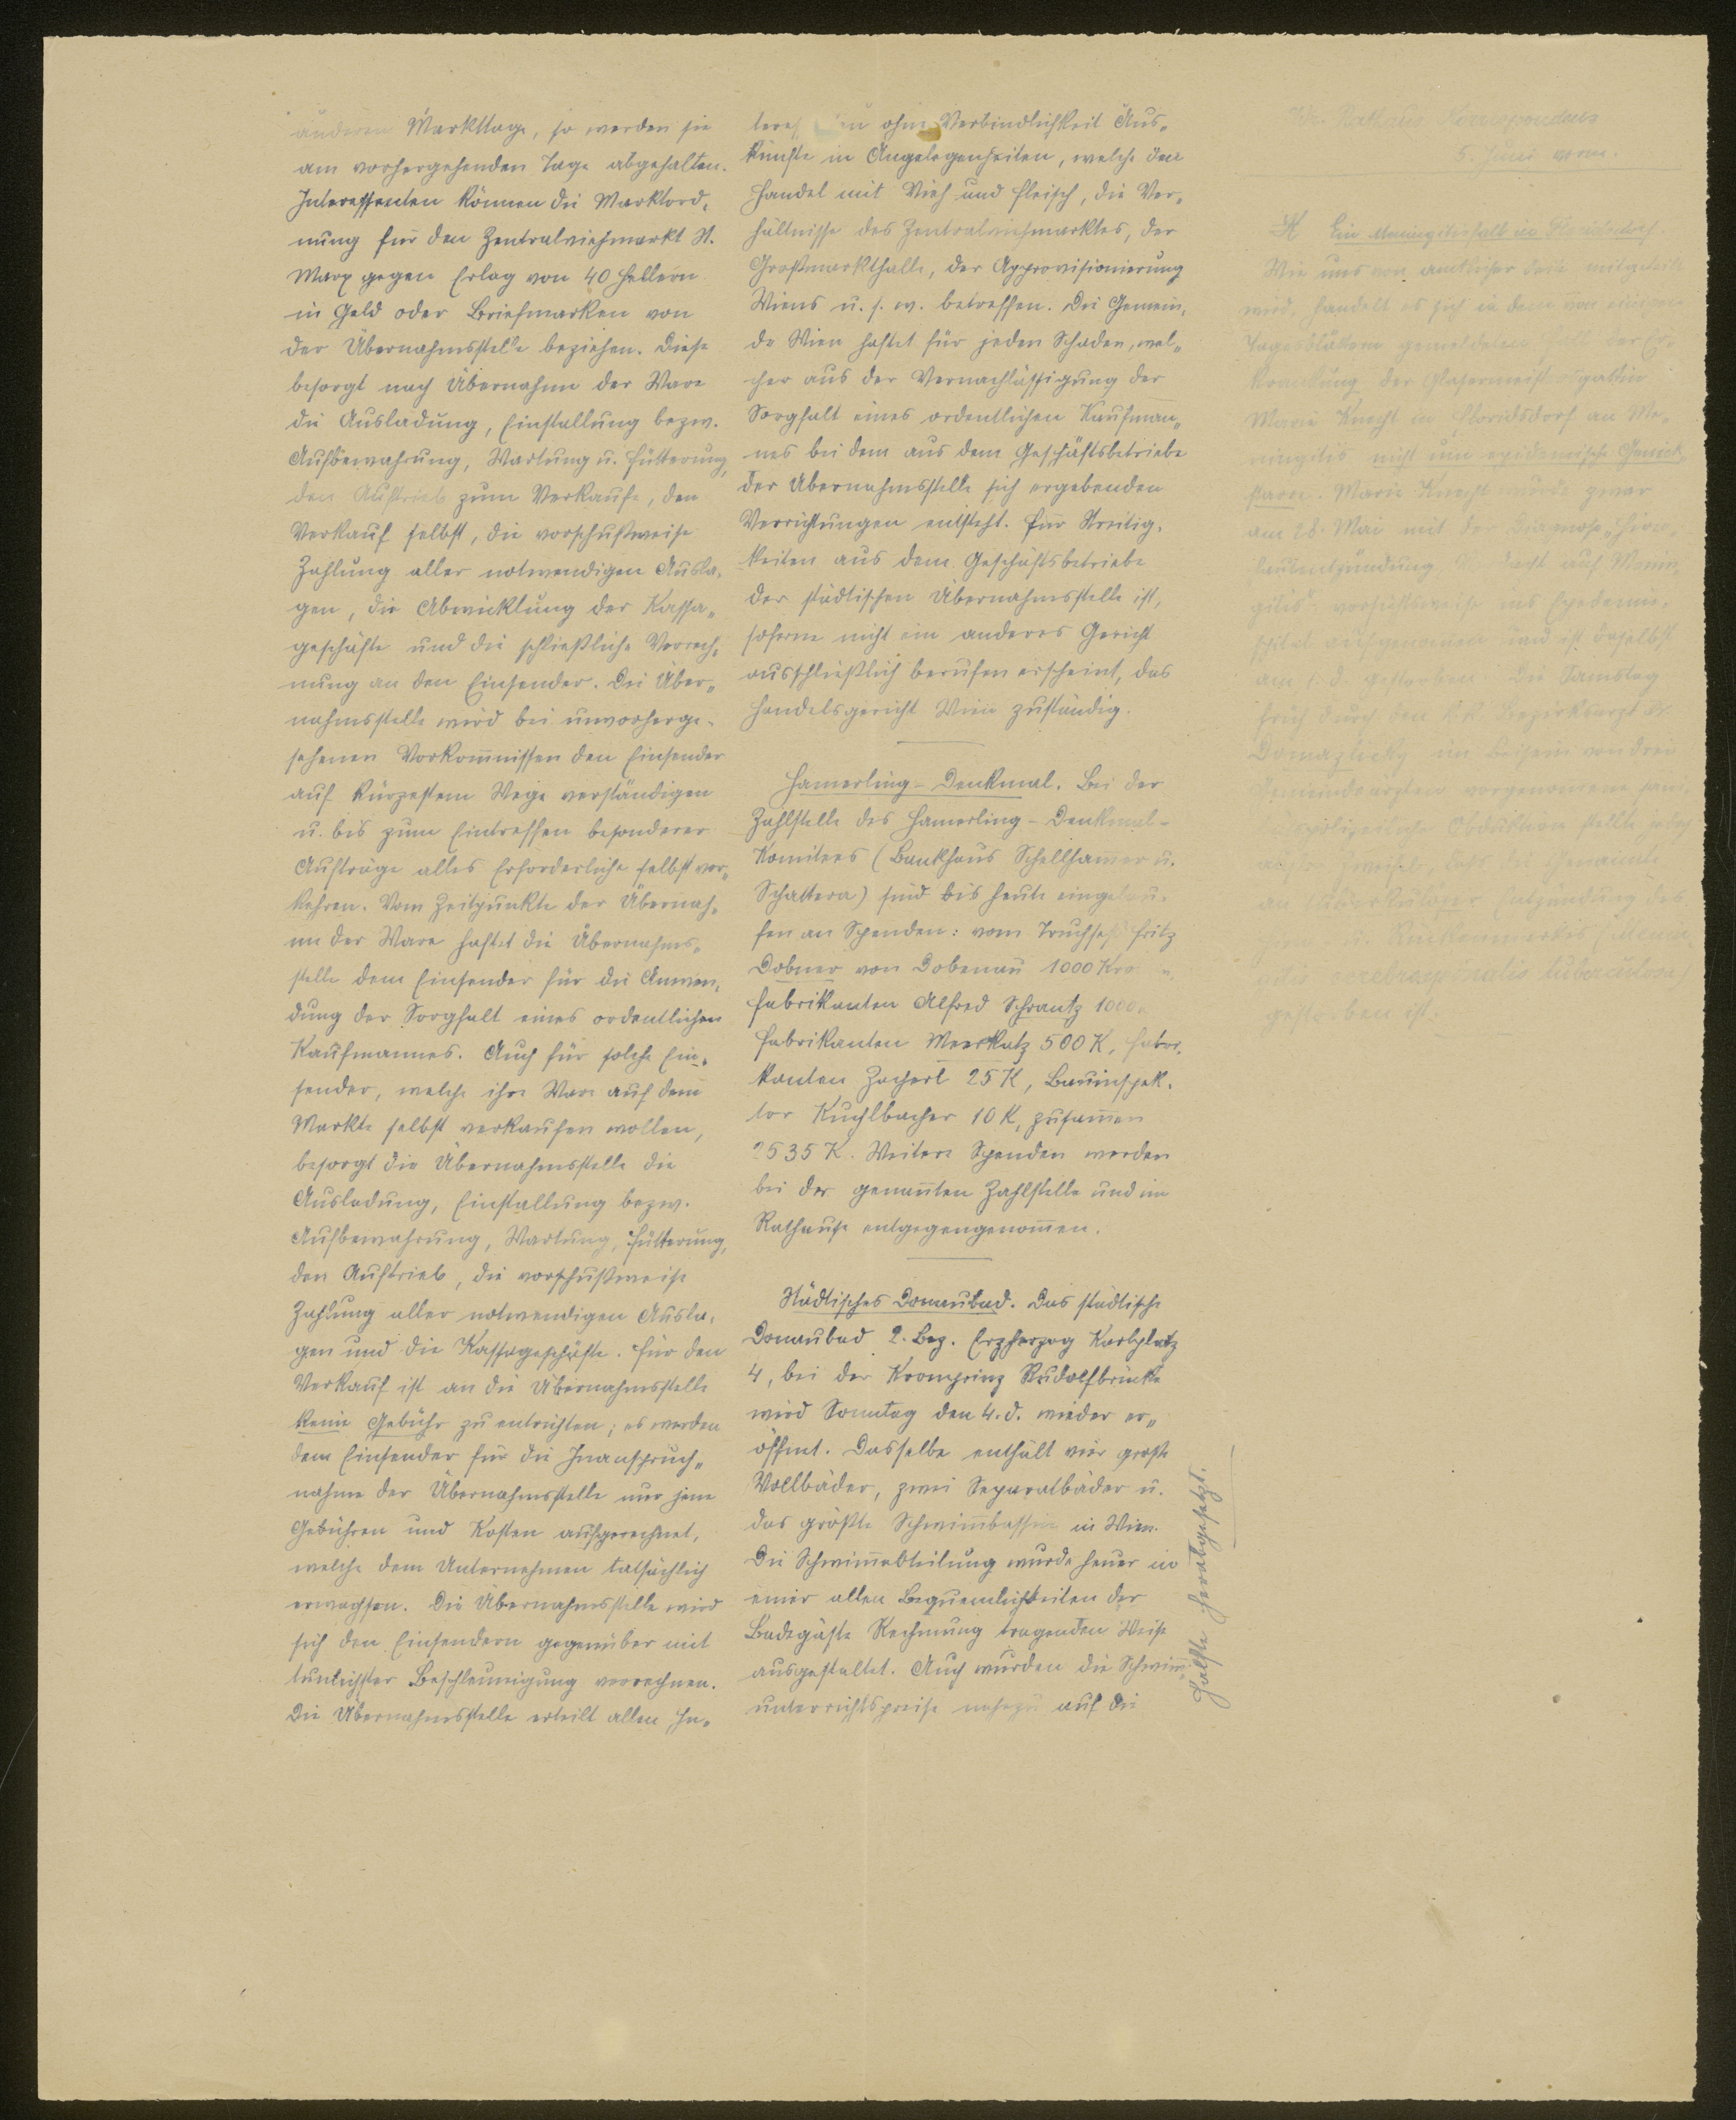 anderen Markttage, so werden sie
am vorhergehenden Tage abgehalten.
Interessenten können die Marktord„
nung für den Zentralviehmarkt St.
Marx gegen Erlag von 40 Hellern
in Geld oder Briefmarken von
der Übernahmsstelle beziehen. Diese
besorgt nach Übernahme der Ware
die Ausladung, Einstallung bezw.
Aufbewahrung, Wartung u. Fütterung,
den Auftrieb zum Verkaufe, den
Verkauf selbst, die vorschußweise
Zahlung aller notwendigen Ausla„
gen, die Abwicklung der Kassa„
geschäfte und die schließliche Verrech„
nung an den Einsender. Die Über„
nahmsstelle wird bei unvorherge„
sehenen Vorkom̅nissen den Einsender
auf kürzestem Wege verständigen
u. bis zum Eintreffen besonderer
Aufträge alles Erforderliche selbst vor„
kehren. Vom Zeitpunkte der Übernah„
me der Ware haftet die Übernahms„
stelle dem Einsender für die Anwen„
dung der Sorgfalt eines ordentlichen
Kaufmannes. Auch für solche Ein„
sender, welche ihre Ware auf dem
Markte selbst verkaufen wollen,
besorgt die Übernahmsstelle die
Ausladung, Einstallung bezw.
Aufbewahrung, Wartung, Fütterung,
den Auftrieb, die vorschußweise
Zahlung aller notwendigen Ausla„
gen und die Kassageschäfte. Für den
Verkauf ist an die Übernahmsstelle
keine Gebühr zu entrichten; es werden
dem Einsender für die Inanspruch„
nahme der Übernahmsstelle nur jene
Gebühren und Kosten aufgerechnet,
welche dem Unternehmen tatsächlich
erwachsen. Die Übernahmsstelle wird
sich den Einsendern gegenüber mit
tunlichster Beschleunigung verrechnen.
Die Übernahmsstelle erteilt allen In„
ohne Verbindlichkeit Aus„
künfte in Angelegenheiten, welche den
Handel mit Vieh und Fleisch, die Ver„
hältnisse des Zentralviehmarktes, der
Großmarkthalle, der Approvisionierung
Wiens u. s. w. betreffen. Die Gemein„
de Wien haftet für jeden Schaden, wel„
cher aus der Vernachlässigung der
Sorgfalt eines ordentlichen Kaufman̅„
nes bei dem aus dem Geschäftsbetriebe
der Übernahmsstelle sich ergebenden
Verrichtungen entsteht. Für Streitig„
keiten aus dem Geschäftsbetriebe
der städtischen Übernahmsstelle ist,
soferne nicht ein anderes Gericht
ausschließlich berufen erscheint, das
Handelsgericht Wien zuständig.
Hamerling-Denkmal. Bei der
Zahlstelle des Hamerling-Denkmal-
Komitees (Bankhaus Schellham̅er u.
Schattera) sind bis heute eingelau„
fen an Spenden: vom Truchseß Fritz
Dobner von Dobenau 1000
Fabrikanten Alfred Schrantz 1000
Fabrikanten Meerkatz 500 K, Fabri„
kanten Zacherl 25 K, Bauinspek„
tor Kuchlbacher 10 K, zusam̅en
2535 K. Weitere Spenden werden
bei der genan̅ten Zahlstelle und im
Rathause entgegengenom̅en.
Städtisches Donaubad. Das städtische
Donaubad 2. Bez. Erzherzog Karlplatz
4, bei der Kronprinz Rudolfbrücke
wird Sonntag den 4. d. wieder er„
öffnet. Dasselbe enthält vier große
Vollbäder, zwei Separatbäder u.
das größte Schwim̅bassin in Wien.
Die Schwim̅abteilung wurde heuer in
einer allen Bequemlichkeiten der
Badegäste Rechnung tragenden Weise
ausgestaltet. Auch wurden die Schwim̅„
unterrichtspreise nahezu auf die
Hälfte herabgesetzt.
Rathaus Korrespondenz
5. Juni vorm.
Ein Meningitisfall in Floridsdorf.
Wie uns von amtlicher Seite mitgeteilt
wird, handelt es sich in dem von einigen
Tagesblättern gemeldeten der Er„
krankung der Glasermeistersgattin
Marie Knecht in Floridsdorf an Me„
ningitis nicht um epidemische Genick„
starre. Marie Knecht wurde zwar
am 28. Mai mit der Diagnose „Hirn„
hautentzündung auf Menin„
gitis“ vorsichtsweise ins Epidemie„
spital aufgenommen und ist daselbst
am 1. d. gestorben. Die Samstag
früh durch den k. k. Bezirksarzt Dr.
Domazlicky im Beisein von drei
Gemeindeärzten vorgenommene sani„
tätspolizeiliche Obduktion stellte jedoch
außer Zweifel, daß die Genannte
an tuberkulöser Entzündung des
Rückenmarkes
cerebrospinalis tuberculosa)
gestorben ist.